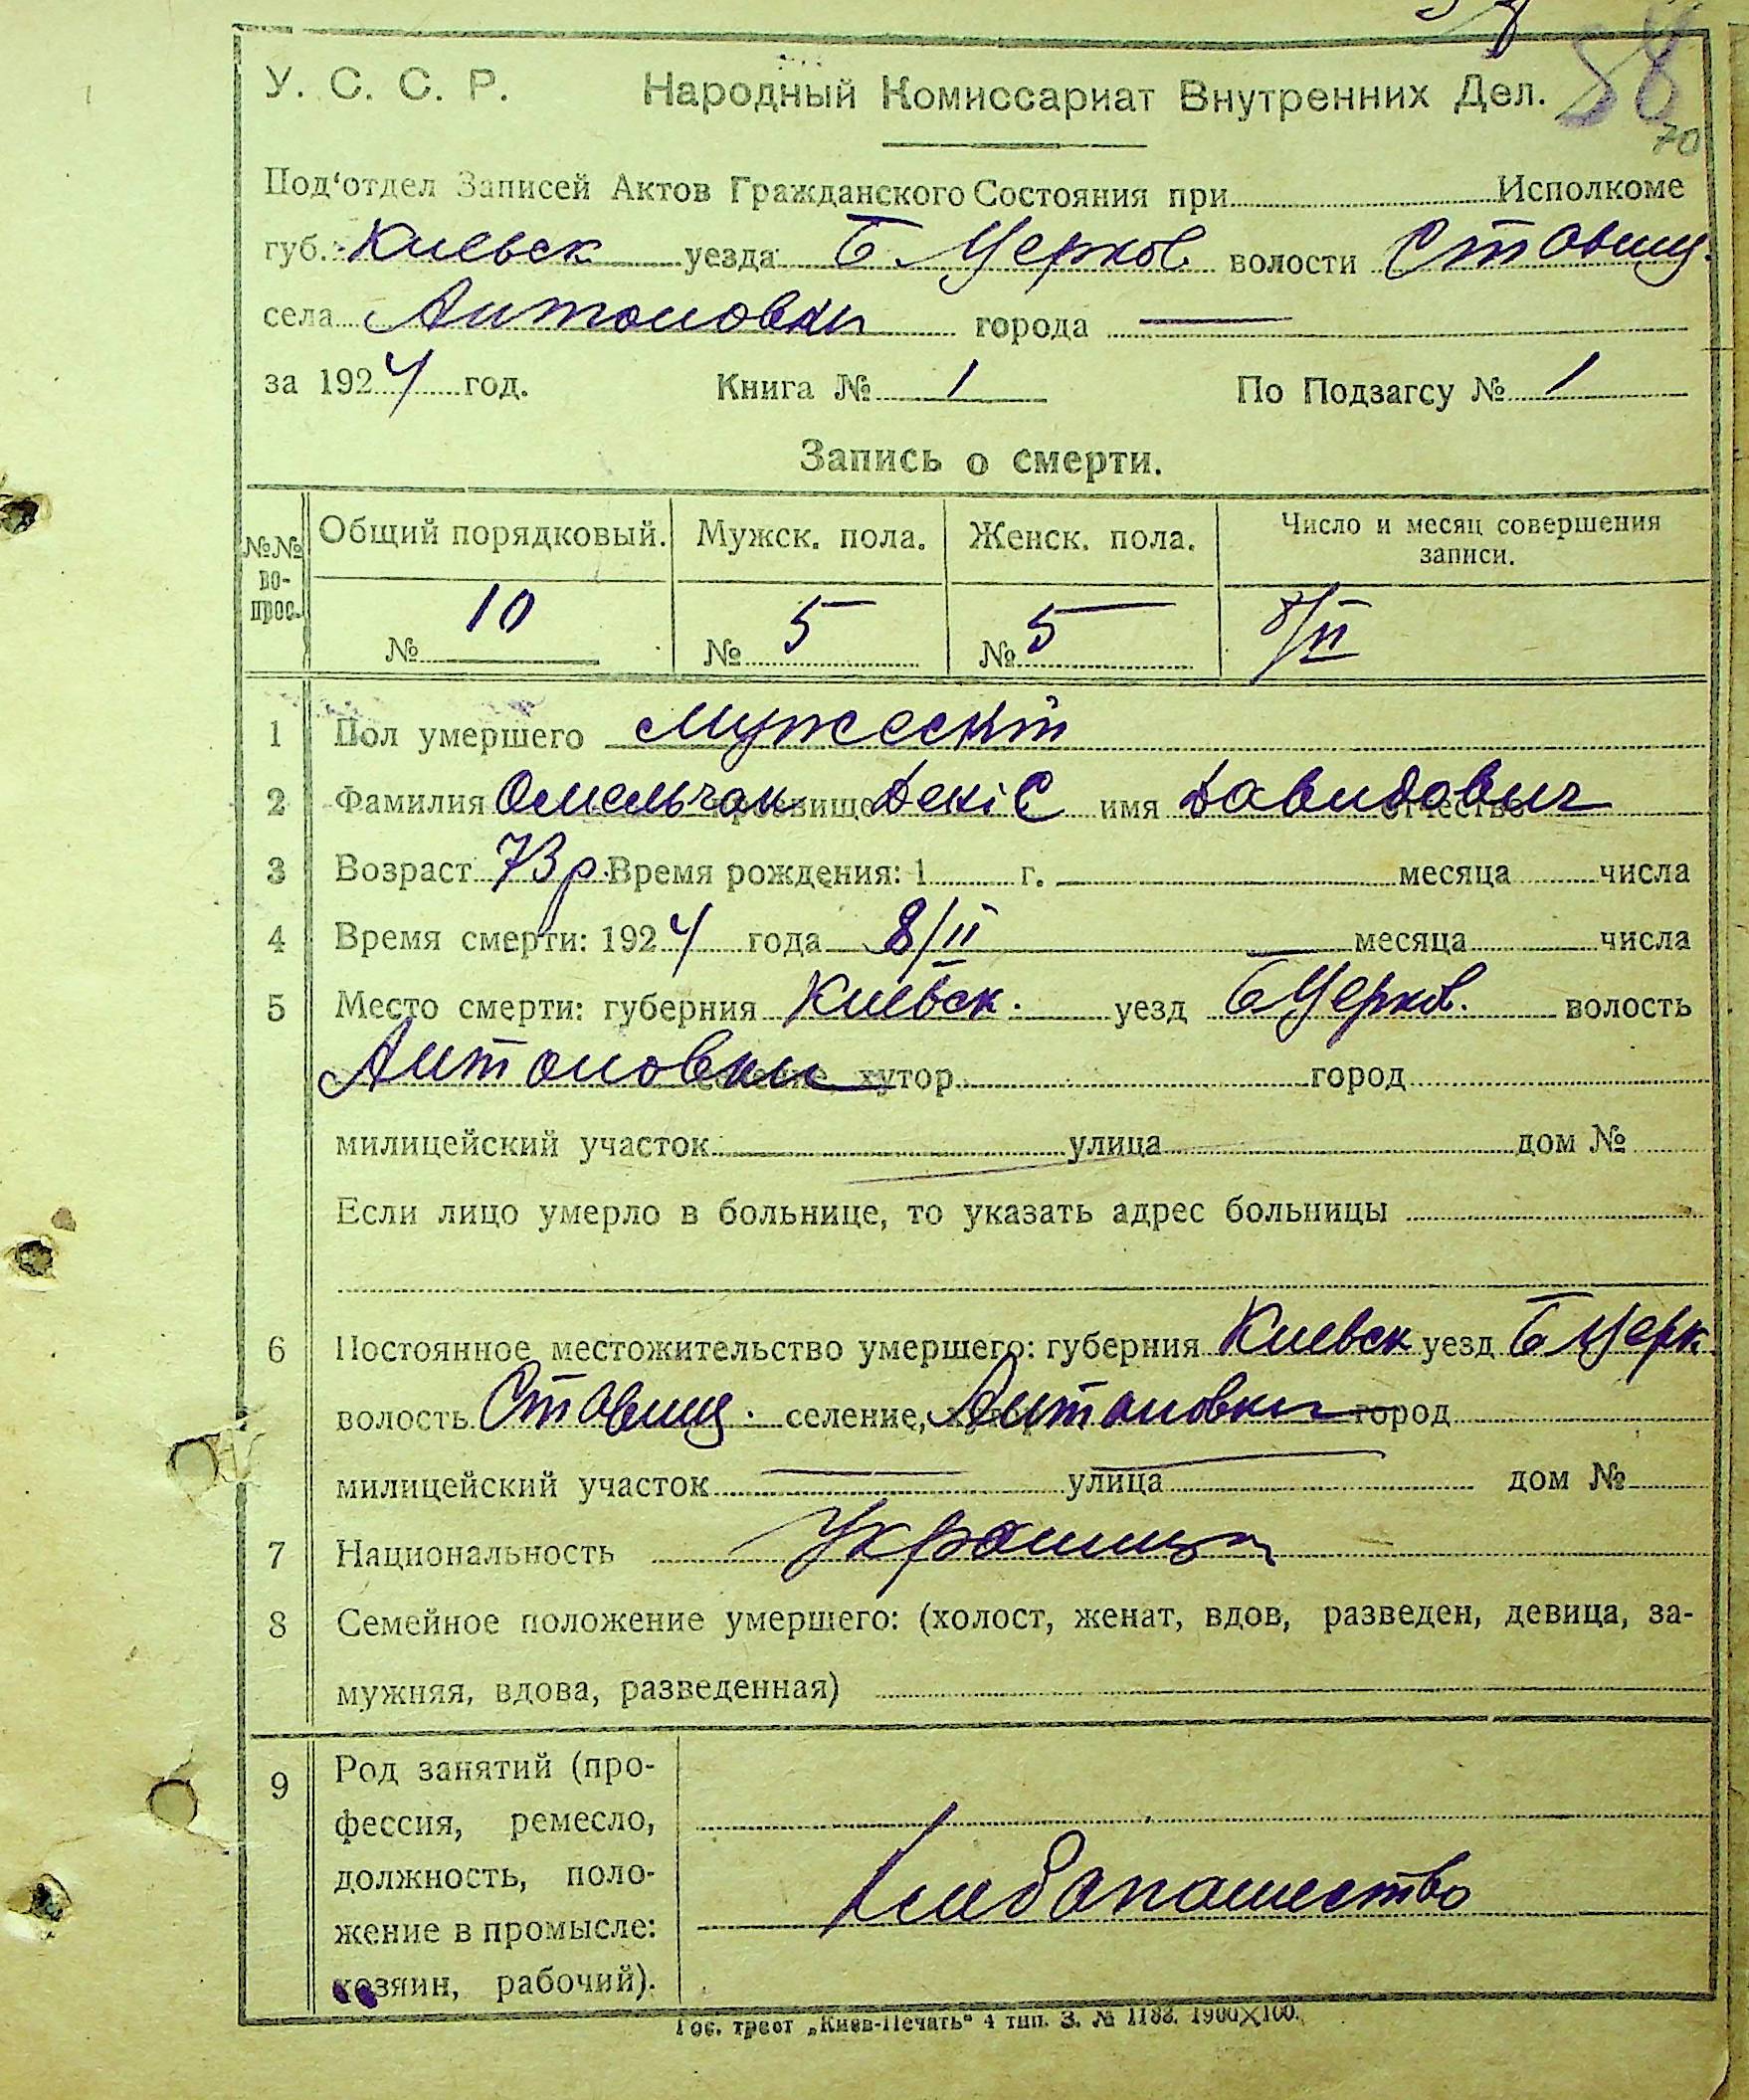 58
70
У. С. С. Р. Народный Комиссариат Внутренних Дел.
Под‘отдел Записей Актов Гражданского Состояния при Исполкоме
губ. Киевск уезда Б. Церков. волости Ставищ.
села Антоновки города —
за 1924 год. Книга № 1 По Подзагсу № 1
Запись о смерти.
№№ во-прос. Общий порядковый. Мужск. пола. Женск. пола. Число и месяц совершения записи.
№ 10 № 5 № 5 8/II
1 Пол умершего мужеский
2 Фамилия Омельчак прозвище Денiс имя Давидович отчество
3 Возраст 73 р. Время рождения: 1 г. — месяца числа
4 Время смерти: 1924 года 8/II месяца числа
5 Место смерти: губерния Киевск. уезд Б Церков. волость
Антоновки селение, хутор город
милицейский участок улица дом №
Если лицо умерло в больнице, то указать адрес больницы
6 Постоянное местожительство умершего: губерния Киевск уезд Б Церк.
волость Ставищ. селение, хутор Антоновки город
милицейский участок — улица — дом №
7 Национальность
8 Семейное положение умершего: (холост, женат, вдов, разведен, девица, за-
мужняя, вдова, разведенная)
9 Род занятий (про-
фессия, ремесло,
должность, поло-
жение в промысле:
хозяин, рабочий).
Хлибопашество
Гос. трест „Киев-Печать“ 4 тип. З. № 1188. 1900X100.